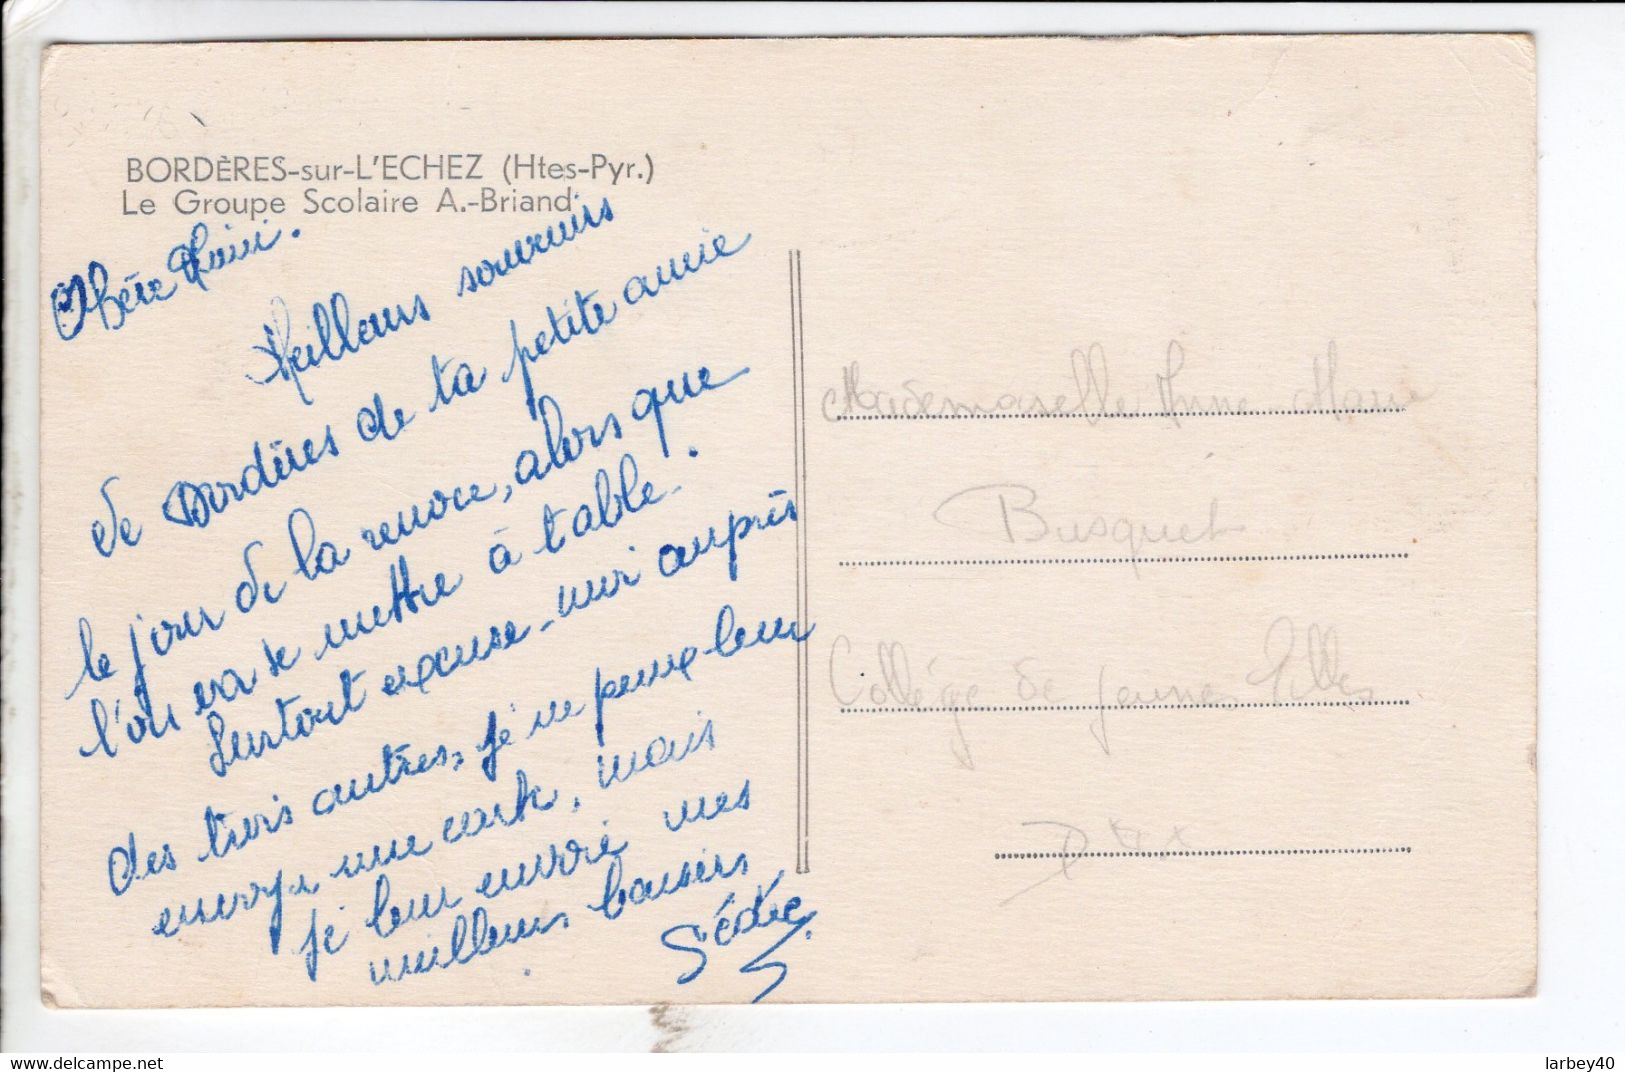 BORDÈRES-sur-L'ECHEZ (Htes-Pyr.)
Le Groupe Scolaire A.-Briand
Chère
Meilleurs souvenirs
de Bordères de ta petite amie
le jour de la, alors que
l'on va se mettre à table.
Surtout excuse-moi auprès
des trois autres, je ne peux leur
envoyer une carte, mais
je leur envoie mes
meilleurs baisers
Mademoiselle Anne-Marie
Busquet
Collège de jeunes Filles
larbey40